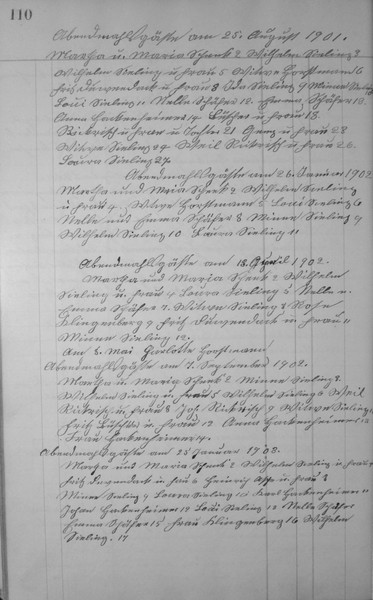 110
Abendmahlsgäste am 25. August 1901.
Martha u. Maria Schenk 2 Wilhelm Sieling 3
Wilhelm Sieling u. Frau 5 Witwe Horstmann 6
Fritz Dürrendack u. Frau 8 Ida Sieling 9 Minna Sieling
Loui Sieling 11 Nelle Schäfer 12. Emma Schäfer 13.
Anna Hartenheimer 14 u. Frau 18
u. Frau u. Tochter 21 u. Frau 23
Witwe Sieling 24 u. Frau 26.
Laura Sieling 27.
Abendmahlsgäste am 26. Januar 1902
Martha und Maria Schenk 2 Wilhelm Sieling
u. Frau 4. Witwe Horstmann 5 Loui Sieling 6
Nelle und Emma Schäfer 8 Minna Sieling 9
Wilhelm Sieling 10 Laura Sieling 11
Abendmahlsgäste am 13. April 1902.
Martha und Maria Schenk 2 Wilhelm
Sieling u. Frau 4 Laura Sieling 5 Nelle u.
Emma Schäfer 7. Witwe Sieling 8
Klingenberg 9 Fritz Dürrendack u. Frau 11
Minna Sieling 12.
Am 8. Mai Charlotte Horstmann
Abendmahlsgäste am 7. September 1902.
Martha u. Maria Schenk 2 Minna Sieling 3.
Wilhelm Sieling u. Frau 5 Wilhelm Sieling 6
u. Frau 8 9 Witwe Sieling
Fritz u. Frau 12 Anna Hartenheimer 13
Frau Hartenheimer 14.
Abendmahlsgäste am 25 Januar 1903.
Martha und Maria Schenk 2 Wilhelm Sieling u. Frau 4
Fritz Dürrendack u. Frau 6 Heinrich u. Frau 8
Minna Sieling 9 Laura Sieling 10 Hartenheimer 11
Hartenheimer 12 Loui Sieling 13 Nelle Schäfer
Emma Schäfer 15 Frau Klingenberg 16 Wilhelm
Sieling. 17